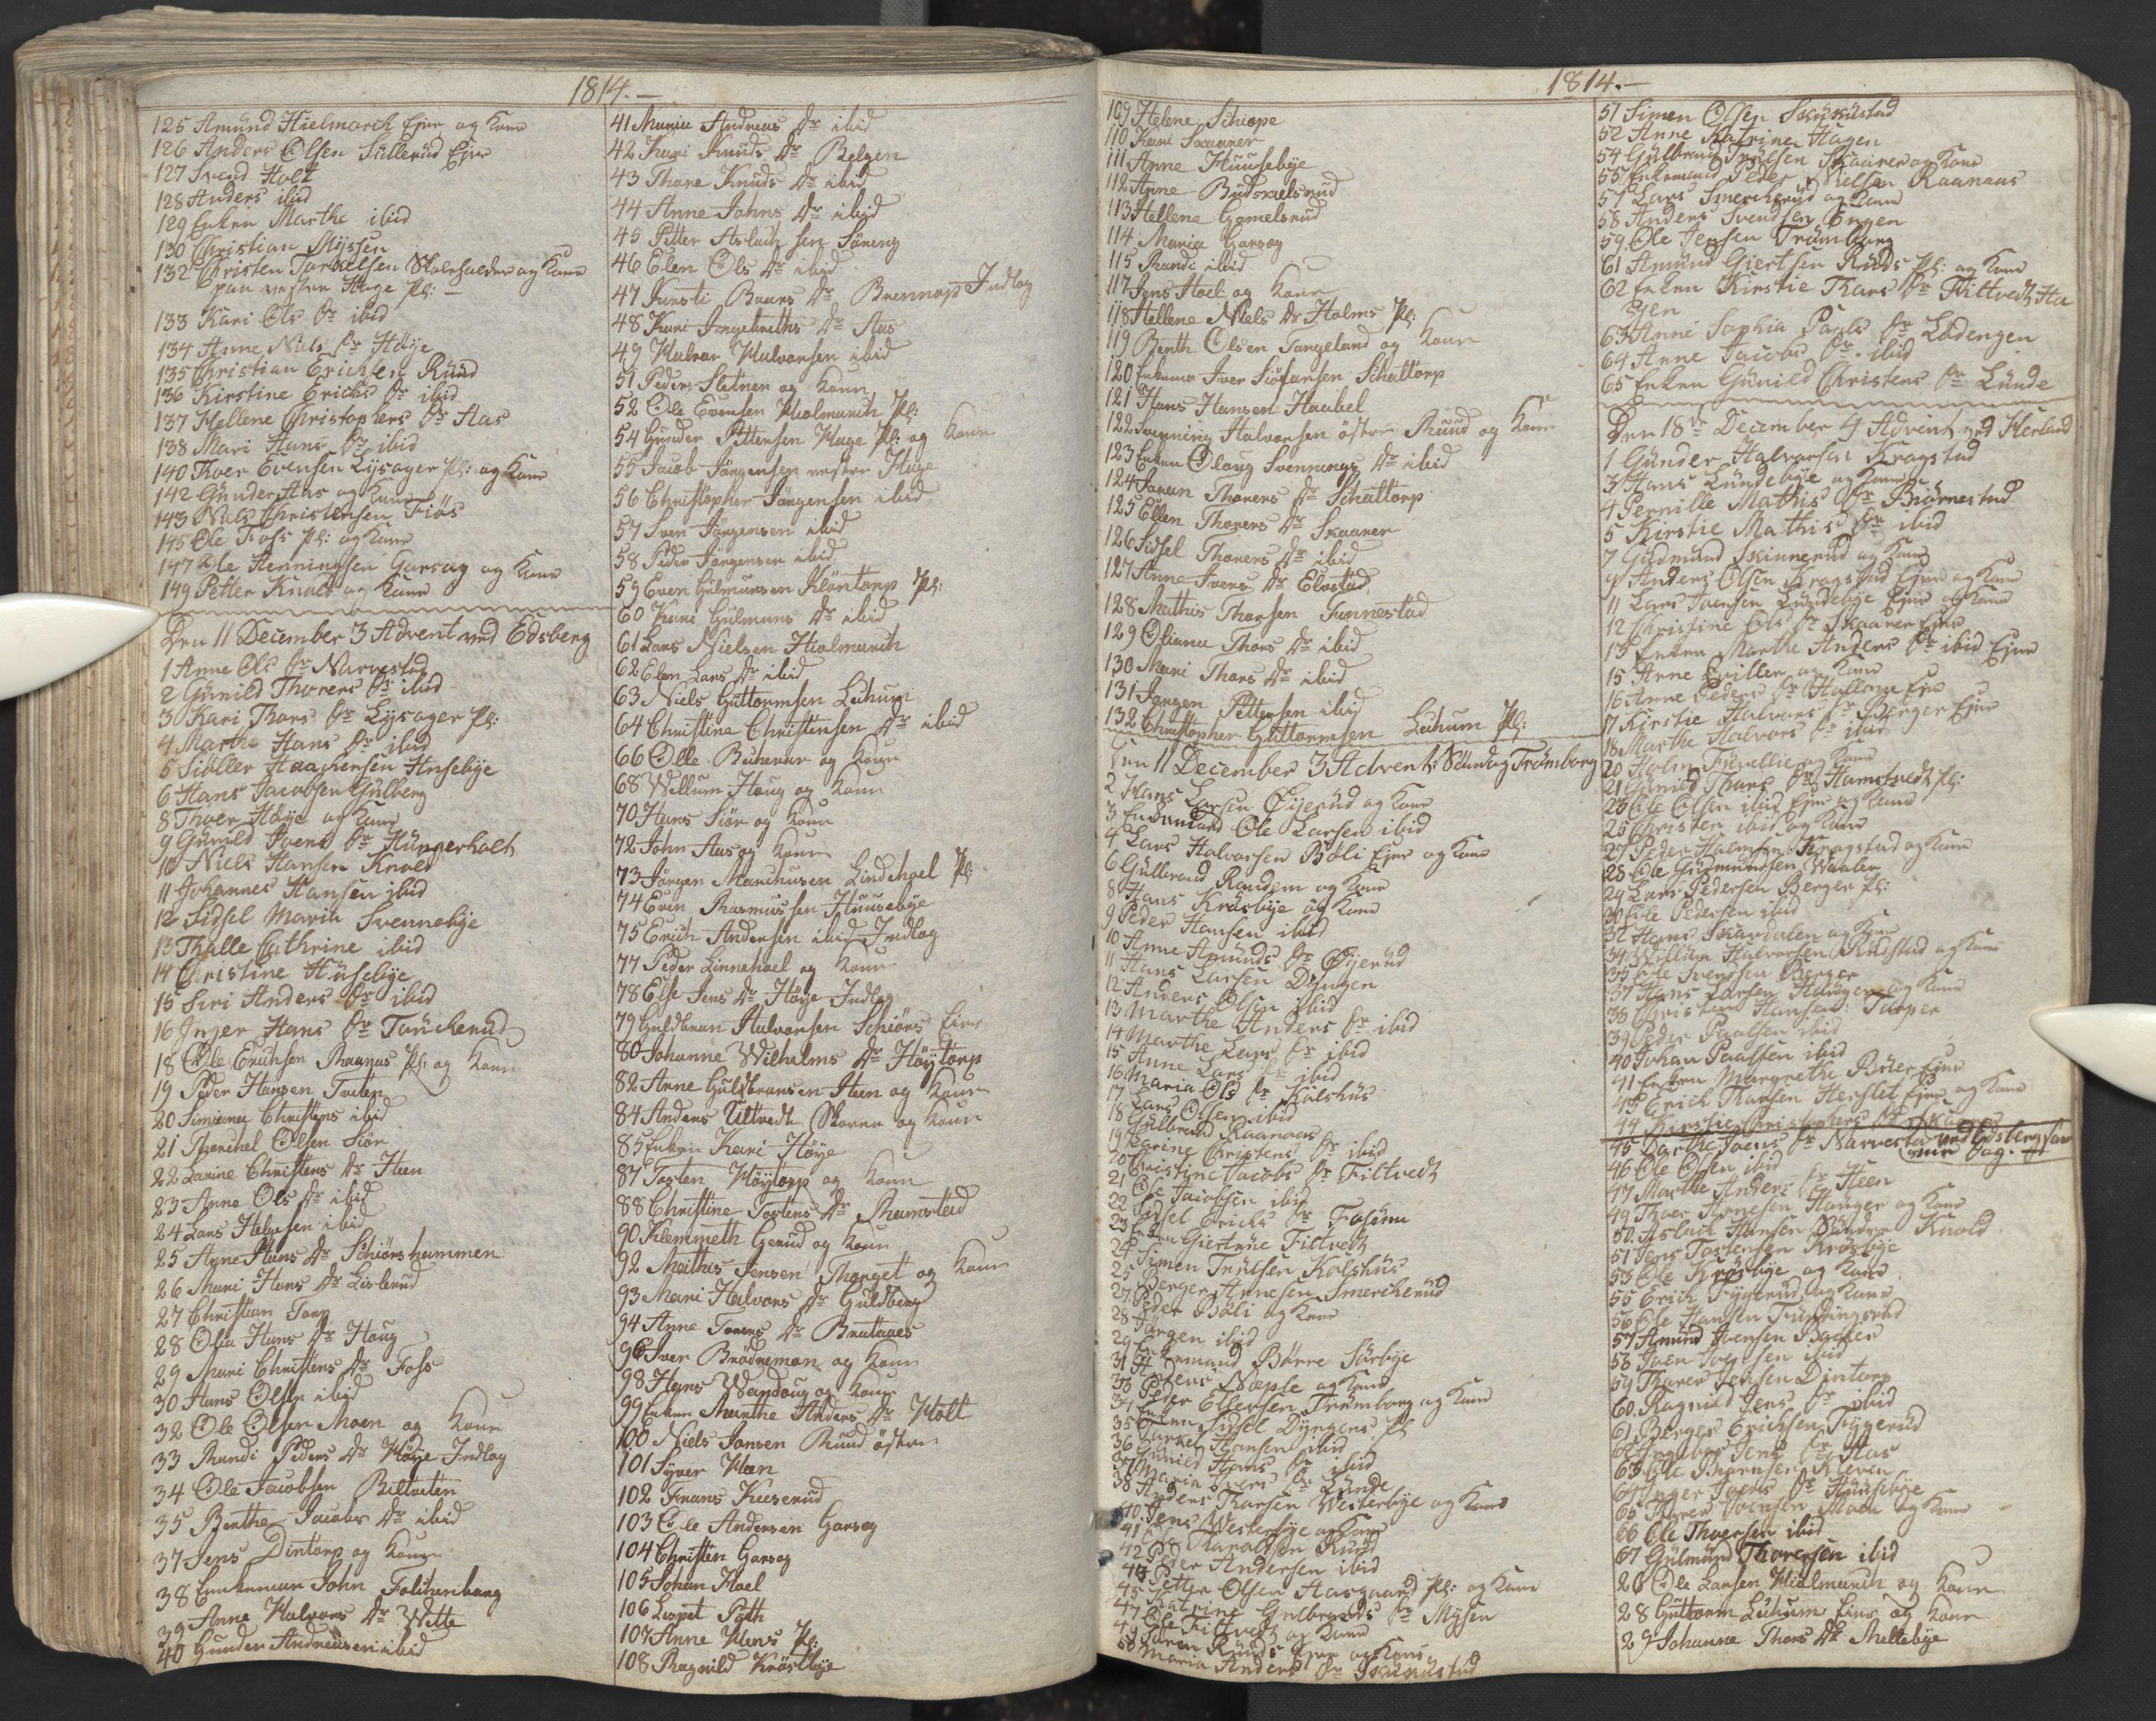 1814.—
125 Amund Hielmarck Ejer og Kone
126 Anders Olsen Sullerud Ejer
127 Svend Holt
128 Anders ibid
129 Enken Marthe ibid
130 Christian Mysen
132 Christen Tarkelsen Skoleholder og Kone
paa vestre Huge Pl: —
133 Kari Ols Dr ibid
134 Anne Niels Dr Høye
135 Christian Erichsen Ruud
136 Kirstine Erichs Dr ibid
137 Hellene Christophers Dr Aas
138 Mari Hans Dr ibid
140 Thoer Evensen Lysager Pl: og Kone
142 Gunder Aas og Kone
143 Niels Christensen Fiøs
145 Ole Foss Pl: og Kone
147 Ole Henningsen Garsæg og Kone
149 Petter Knold og Kone
Den 11 December 3 Advent ved Edsberg
1 Anne Ols Dr Narvestad
2 Gunild Thorers Dr ibid
3 Kari Thors Dr Lysager Pl:
4 Marthe Hans Dr ibid
5 Haachensen Husebye
6 Hans Jacobsen Gulberg
8 Thoer Høye og Kone
9 Gunild Ivers Dr Hungerholt
10 Niels Hansen Knold
11 Johannes Hansen ibid
12 Sidsel Maria Svennebye
13 Thalle Cathrine ibid
14 Christine Husebye
15 Siri Anders Dr ibid
16 Inger Hans Dr Tanckerud
18 Ole Erichsen Raanas Pl: og Kone
19 Peder Hansen Tveten
20 Simine Christens ibid
21 Thorchel Olsen Siør
22 Larine Christens Dr Heen
23 Anne Ols Dr ibid
24 Lars Helgesen ibid
25 Anne Hans Dr Schiørshammen
26 Mari Hans Dr Lislerud
27 Christian Torp
28 Olia Hans Dr Houg
29 Mari Christens Dr Foss
30 Hans Olsen ibid
32 Ole Olsen Moen og Kone
33 Randi Peders Dr Høye Indlag
34 Ole Jacobsen Biltveten
35 Berthe Jacobs Dr ibid
37 Jens Dintorp og Kone
38 Enkeman John Folckenborg
39 Anne Halvors Dr Wette
40 Gunder Andreasen ibid
41 Maria Andreas Dr ibid
42 Kari Knuds Dr Belgen
43 Thore Knuds Dr ibid
44 Anne Johns Dr ibid
45 Petter Aslachsen Søneng
46 Elen Ols Dr ibid
47 Kirsti Baars Dr Brennop Indlag
48 Kari Ingebreths Dr Aas
49 Halvor Halvorsen ibid
51 Peder Sletner og Kone
52 Ole Evensen Hielmarck Pl:
54 Gunder Pettersen Huge Pl: og Kone
55 Jacob Jørgensen vestre Huge
56 Christopher Jørgensen ibid
57 Iver Jørgensen ibid
58 Peder Jørgensen ibid
59 Even Gulmunsen Kløntorp Pl:
60 Kari Gulmuns Dr ibid
61 Lars Nielsen Hielmarck
62 Elen Lars Dr ibid
63 Niels Guttormsen Lehum
64 Christine Christensen Dr ibid
66 Olle Buheren og Kone
68 Willum Houg og Kone
70 Hans Siør og Kone
72 John Aas og Kone
73 Jørgen Marchusen Lindehoel Pl:
74 Even Rasmussen Huusebye
75 Erich Andersen ibid Indlag
77 Peder Linnehoel og Kone
78 Else Jens Dr Høye Indlag
79 Guldbran Halvorsen Schiørs Ejer
80 Johanne Wilhelms Dr Høytorp
82 Arne Guldbransen Heen og Kone
84 Anders Ultvedt Skoren og Kone
85 Enken Kari Høye
87 Tosten Høytorp og Kone
88 Christine Tostens Dr Ramstad
90 Klemmeth Gerud og Kone
92 Mathis Jensen Thonget og Kone
93 Mari Halvors Dr Guldberg
94 Anne Torers Dr Brataaes
96 Iver Brødremon og Kone
98 Hans Wandoug og Kone
99 Enken Marthe Anders Dr Holt
100 Niels Jonsen Ruud østre
101 Syver Heen
102 Frans Kuserud
103 Ole Andersen Garsæg
104 Christen Garsæg
105 Johan Hoel
106 Lispet Pøth
107 Anne Hans Pl:
108 Ragnild Krosbye
1814.—
109 Helene Schiope
110 Kari Skaarer
111 Anne Huusebye
112 Anne Budskielsrud
113 Hellene Gamelsrud
114 Maria Garsæg
115 Randi ibid
117 Jens Hoel og Kone
118 Hellene Niels Dr Holms Pl:
119 Benth Olsen Tangeland og Kone
120 Enkemand Iver Schattorp
121 Hans Hansen Haabel
122 Svenning Halvorsen østre Ruud og Kone
123 Enken Olaug Svennings Dr ibid
124 Jorun Thorers Dr Schattorp
125 Ellen Thorers Dr Skaarer
126 Sidsel Thorers Dr ibid
127 Anne Ivers Dr Elvestad
128 Mathis Thorsen Tonnestad
129 Oliana Thors Dr ibid
130 Mari Thors Dr ibid
131 Jørgen Pettersen ibid
132 Christopher Guttormsen Lehum Pl:
Den 11 December 3 Advents Søndag Trømborg
2 Hans Larsen Øijerud og Kone
3 Enkemand Ole Larsen ibid
4 Lars Halvorsen Bøli Ejer og Kone
6 Gulbrand Randem og Kone
8 Hans Krosbye og Kone
9 Peder Hansen ibid
10 Anne Amunds Dr Øijerud
11 Hans Larsen Dyngen
12 Anders Olsen ibid
13 Marthe Anders Dr ibid
14 Marthe Lars Dr ibid
15 Anne Lars Dr ibid
16 Maria Ols Dr Kolshus
17 Lars Olsen ibid
18 Gulbrand Raanaas
19 Karine Christens Dr ibid
20 Christine Jacobs Dr Fittvedt
21 Ole Jacobsen ibid
22 Sidsel Erichs Dr
23 Enken Giertrue Fittvedt
24 Simen Truelsen Kolshus
25 Berger Arnesen Smerckerud
27 Peder Bøli og Kone
28 Jørgen ibid
29 Enkemand Børre Sørbye
31 Jens Næple og Kone
33 Peder Ellefsen Trømborg og Kone
34 Enken Sidsel Dyngens Pl
35 Tarkel Hansen ibid
36 Gunild Hans Dr ibid
37 Maria Ivers Dr Lunde
38 Anders Thorsen Westerbye og Kone
40 Jens Westerbye og Kone
41 Ole Haraldsen Ruud
42 Peder Andersen ibid
Petter Olsen Aasgaard Pl: og Kone
45 Katrine Gulbrands Dr Mysen
47 Ole Fittvedt og Kone
49 Søren Ruuds Ejer og Kone
50 Maria Anders Dr Skukustad
51 Simen Olsen Skukustad
52 Anne Katrine Hagen
54 Gulbrand Truelsen Skaarer og Kone
55 Enkemand Peder Nielsen Raanaas
57 Lars Smerckerud og Kone
58 Anders Svendsen Engen
59 Ole Jensen Trømborg
61 Amund Giertsen Ruds Pl: og Kone
62 Enken Kirstie Thors Dr Fittvedt Ha
gen
63 Anne Sophia Povels Dr Ladengen
64 Anne Jacobs Dr ibid
65 Enken Gunild Christens Dr Lunde
Den 18de December 4 Advent ved Herland
1 Gunder Halvorsen Kragstad
3 Hans Lundebye og Kone
4 Pernille Mathis Dr Biørnestad
5 Kirstie Mathis Dr ibid
7 Gudmund Skinnerud og Kone
9 Anders Olsen Kragstad Ejer og Kone
11 Lars Joensen Lundebye Ejer og Kone
12 Christine Ols Dr Skaarer Ejer
13 Enken Marthe Anders Dr ibid Ejer
15 Arne og Kone
16 Anne Peders Dr
17 Kirstie Halvors Dr Berger Ejer
18 Marthe Halvors Dr ibid
20 Holm og Kone
21 Gunild Thors Dr Hamstvedt Pl:
23 Ole Olsen ibid Ejer og Kone
25 Christen ibid og Kone
27 Peder Kragstad og Kone
28 Ole Gudmundsen Waaler
29 Lars Pedersen Berger Pl:
30 Ole Pedersen ibid
32 Hans Skardalen og Kone
34 Willum Halvorsen og Kone
35 Ole Svensen Berger
37 Hans Larsen Hunger og Kone
38 Christen Hansen Torper
39 Peder Paalsen ibid
40 Johan Paalsen ibid
41 Enken Margrethe Ejer
43 Erich Thorsen Herslet Ejer og Kone
44 Kirstie Christophers Dr
45 Dorthe Joens Dr Narvestad ved Edsberg samme Dag.
46 Ole Olsen ibid
47 Marthe Anders Dr Heen
49 Thoer Arnesen Hunger og Kone
50 Aslach Hansen Knold
51 Jens Tostensen Krosbye
53 Ole Krosbye og Kone
55 Erich Fygerud og Kone
56 Ole Hansen
57 Amund Ivensen
58 Joen ibid
59 Thorer Jensen Dintorp
60 Ragnild Jens Dr ibid
61 Berger Erichsen Fygerud
62 Ingebor Jens Dr Aas
63 Ole Biørnsen Kleven
64 Inger Joens Dr Huusebye
65 Thorer Joensen Moen og Kone
66 Ole Thoersen ibid
67 Gulmund Thoresen ibid
26 Ole Larsen Hielmarck og Kone
28 Guttorm Lehum Ejer og Kone
29 Johanne Thors Dr Mellebye